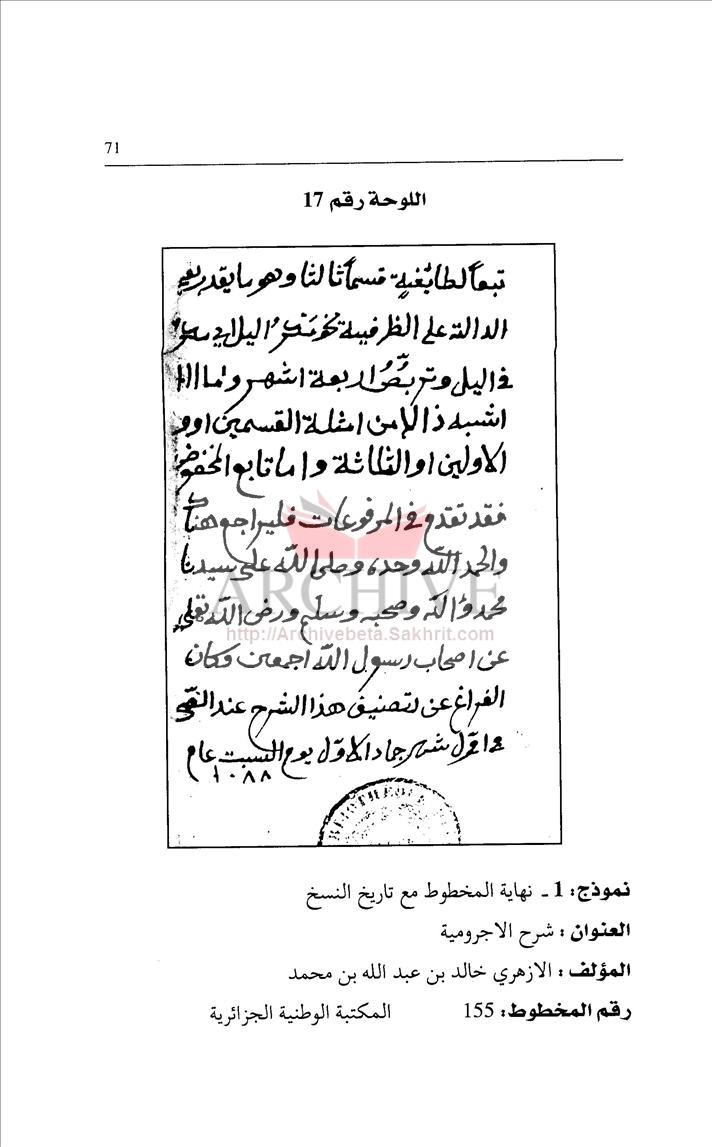 71
اللوحة رقم 17
تبعا لطائفية قسما ثالثا وهو ما يقدر بفي
الدالة على الظرفية نحو مكر اليل اي مكر
في اليل وتربص اربعة اشهر وما
اشبه ذالك من امثلة القسمين او
الاولين او الثلاثة واما تابع المخفوض
فقد تقدم في المرفوعات فليراجع هناك
والحمد لله وحده وصلى الله على سيدنا
محمد وآله وصحبه وسلم ورضي الله تعلى
عن اصحاب رسول الله اجمعين وكان
الفراغ عن تصنيف هذا الشرح عند
اول شهر جماد الاول يوم السبت عام
١٠٨٨
ARCHIVE
http://Archivebeta.Sakhrit.com
نموذج: 1 ـ نهاية المخطوط مع تاريخ النسخ
العنوان : شرح الاجرومية
المؤلف : الازهري خالد بن عبد الله بن محمد
رقم المخطوط: 155 المكتبة الوطنية الجزائرية